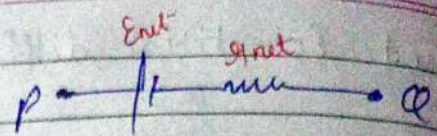 Enet rnet
P Q